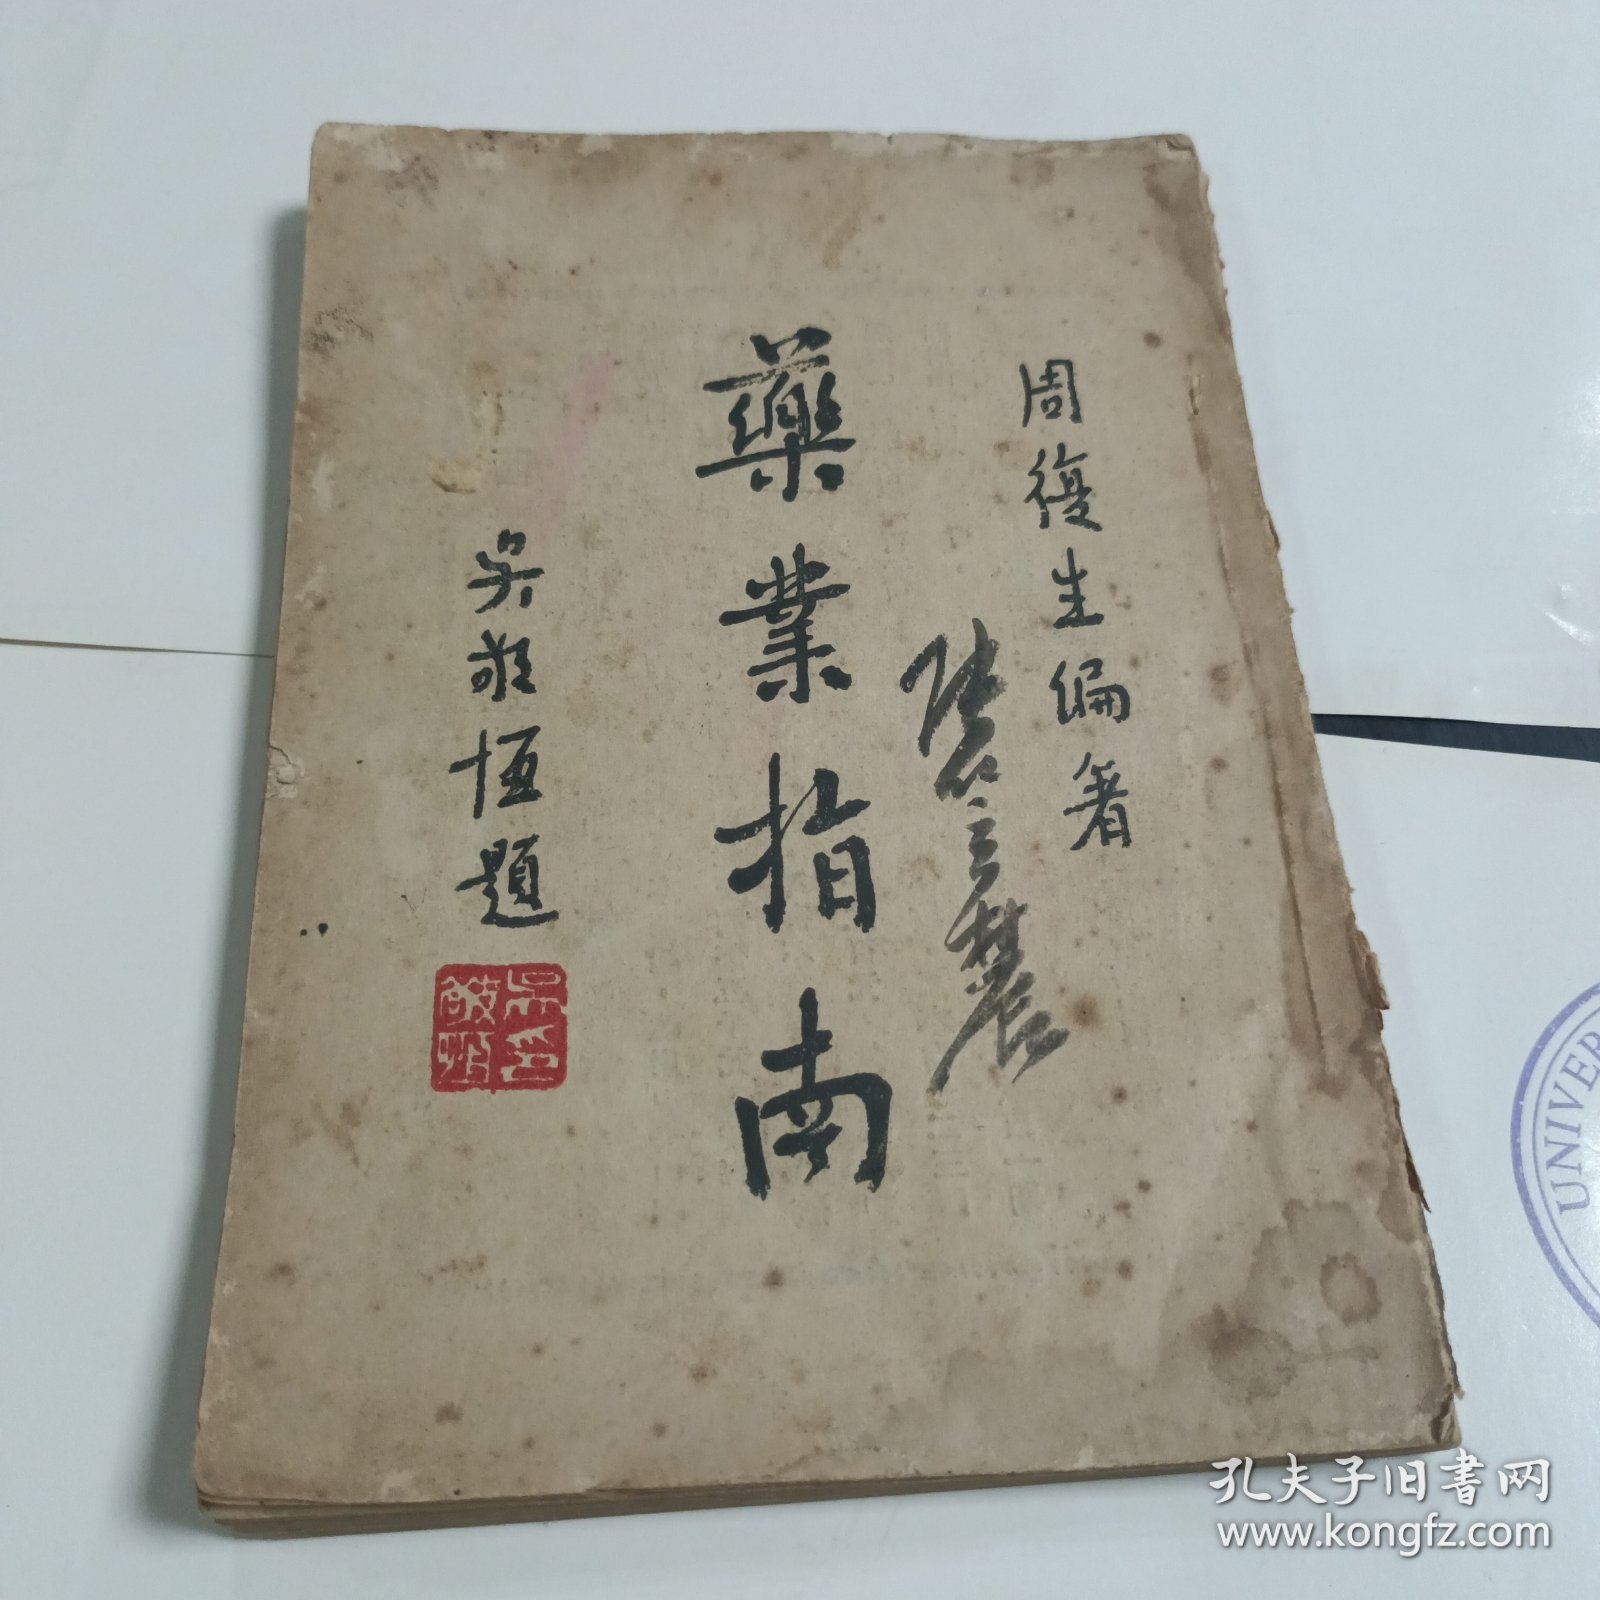 周復生編著
藥業指南
吳敬恆題
吳敬恆印
UNIVER
孔夫子旧书网
www.kongfz.com